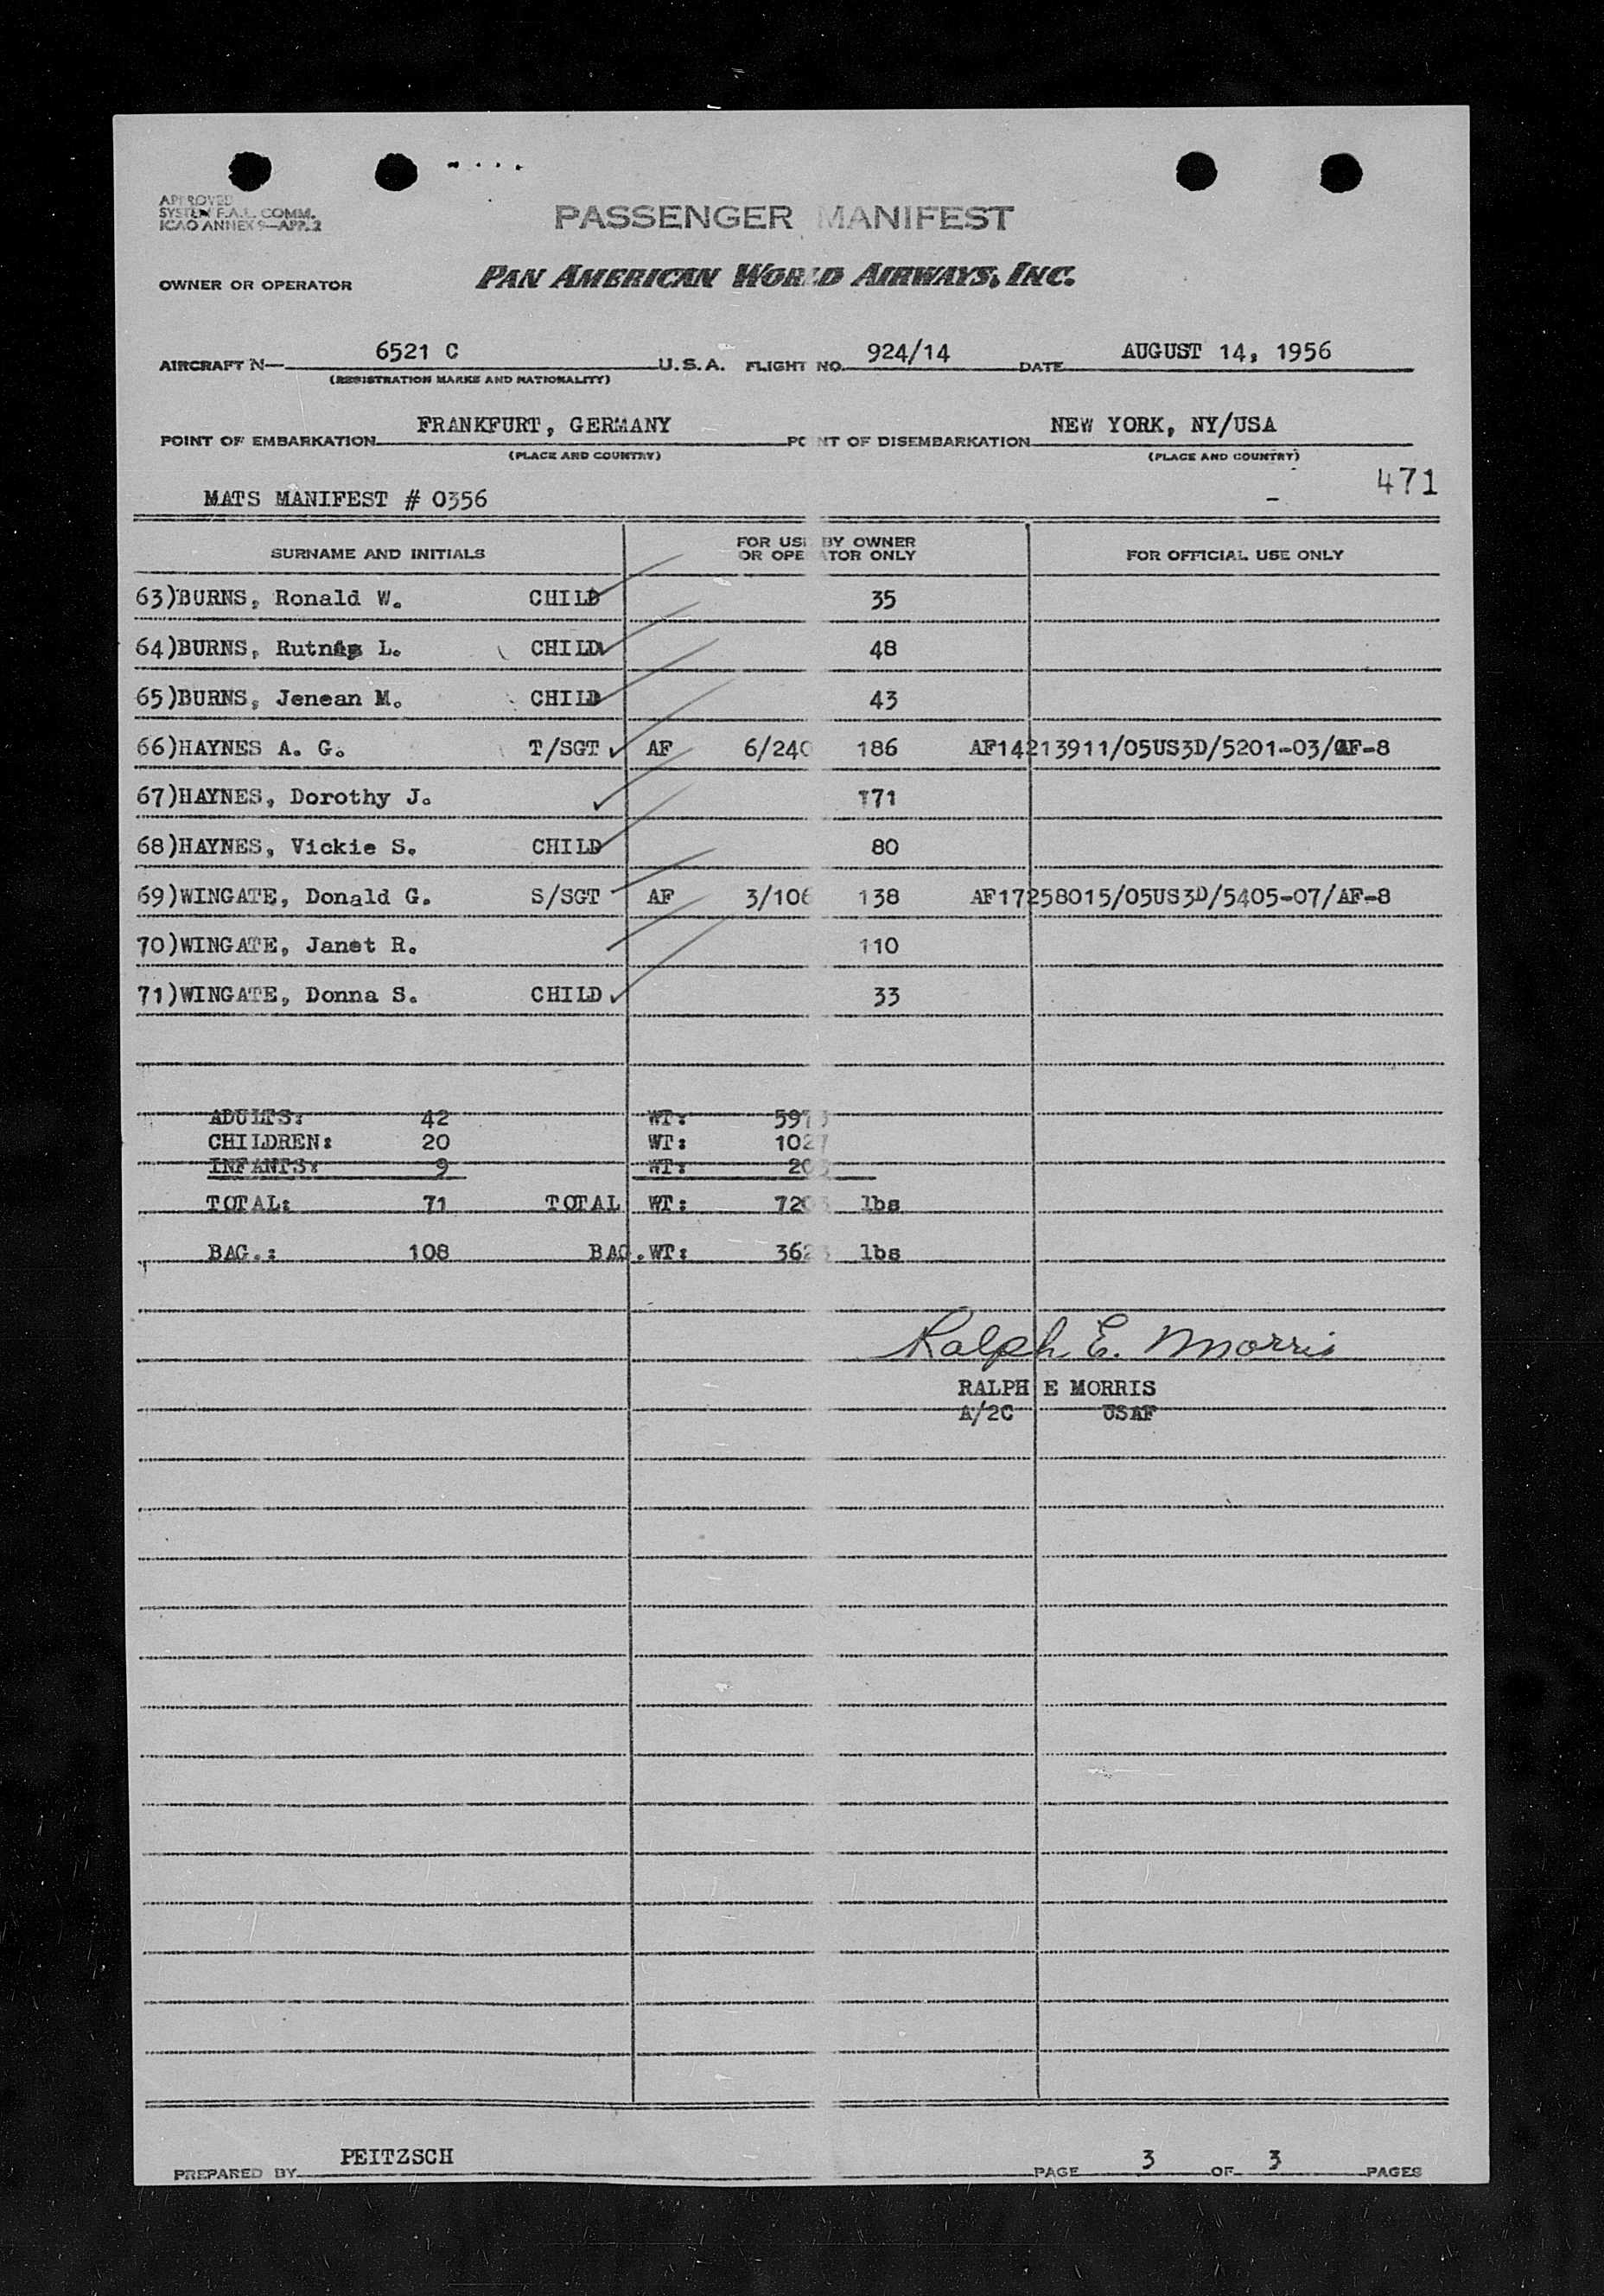 APPROVED
SYSTEM F.A.L. COMM.
ICAO ANNEX 9—APP. 2
PASSENGER MANIFEST
OWNER OR OPERATOR PAN AMERICAN WORLD AIRWAYS, INC.
AIRCRAFT N— 6521 C U.S.A. FLIGHT NO. 924/14 DATE AUGUST 14, 1956
(REGISTRATION MARKS AND NATIONALITY)
POINT OF EMBARKATION FRANKFURT, GERMANY POINT OF DISEMBARKATION NEW YORK, NY/USA
(PLACE AND COUNTRY) (PLACE AND COUNTRY)
471
MATS MANIFEST # 0356
SURNAME AND INITIALS FOR USE BY OWNER OR OPERATOR ONLY FOR OFFICIAL USE ONLY
63)BURNS, Ronald W. CHILD 35
64)BURNS, L. CHILD 48
65)BURNS, Jenean M. CHILD 43
66)HAYNES A. G. T/SGT AF 6/240 186 AF14213911/05US3D/5201-03/AF-8
67)HAYNES, Dorothy J. 171
68)HAYNES, Vickie S. CHILD 80
69)WINGATE, Donald G. S/SGT AF 3/106 138 AF17258015/05US3D/5405-07/AF-8
70)WINGATE, Janet R. 110
71)WINGATE, Donna S. CHILD 33
ADULTS: 42 WT: 5973
CHILDREN: 20 WT: 1027
INFANTS: 9 WT: 203
TOTAL: 71 TOTAL WT: 7203 lbs
BAG.: 108 BAG.WT: 3623 lbs
Ralph E. Morris
RALPH E MORRIS
A/2C USAF
PREPARED BY PEITZSCH PAGE 3 OF 3 PAGES